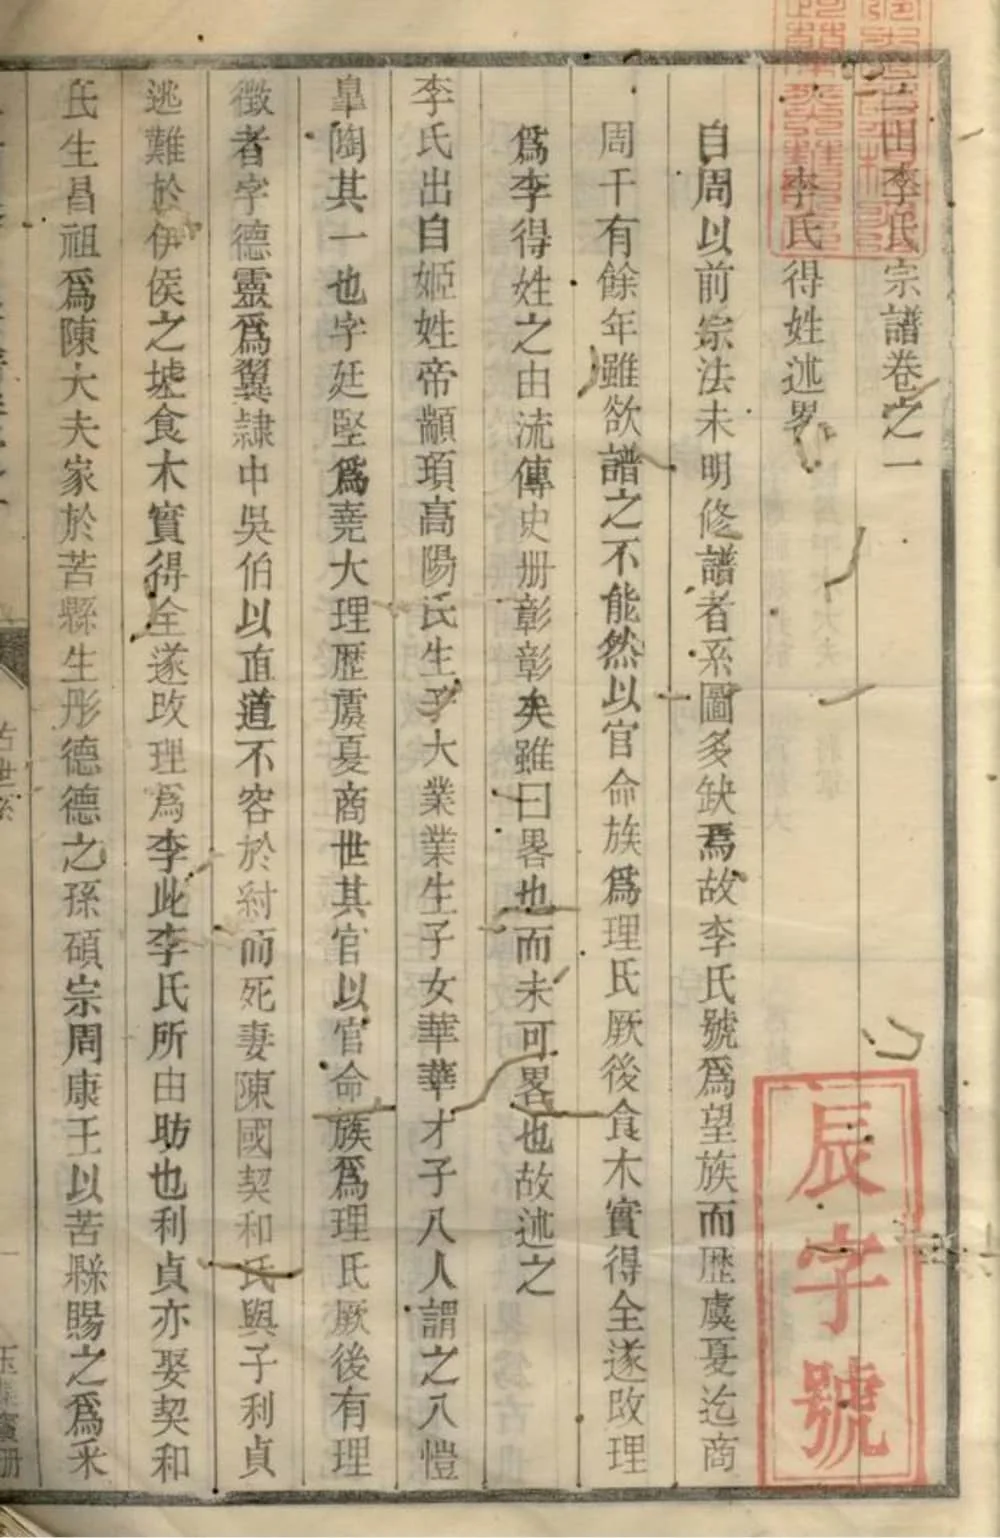 三田李氏宗譜卷之一
李氏得姓述畧
自周以前宗法未明修譜者系圖多缺焉故李氏號爲望族而歴虞夏迄商
周千有餘年雖欲譜之不能然以官命族爲理氏厥後食木實得全遂改理
爲李得姓之由流傳史册彰彰矣雖曰畧也而未可畧也故述之
李氏出自姬姓帝顓頊高陽氏生子大業業生子女華華才子八人謂之八愷
皐陶其一也字廷堅爲堯大理歴虞夏商世其官以官命族爲理氏厥後有理
徵者字德靈爲翼隷中吳伯以直道不容於紂而死妻陳國契和氏與子利貞
逃難於伊侯之墟食木實得全遂改理爲李此李氏所由昉也利貞亦娶契和
氏生昌祖爲陳大夫家於苦縣生彤德德之孫碩宗周康王以苦縣賜之爲采
辰字號